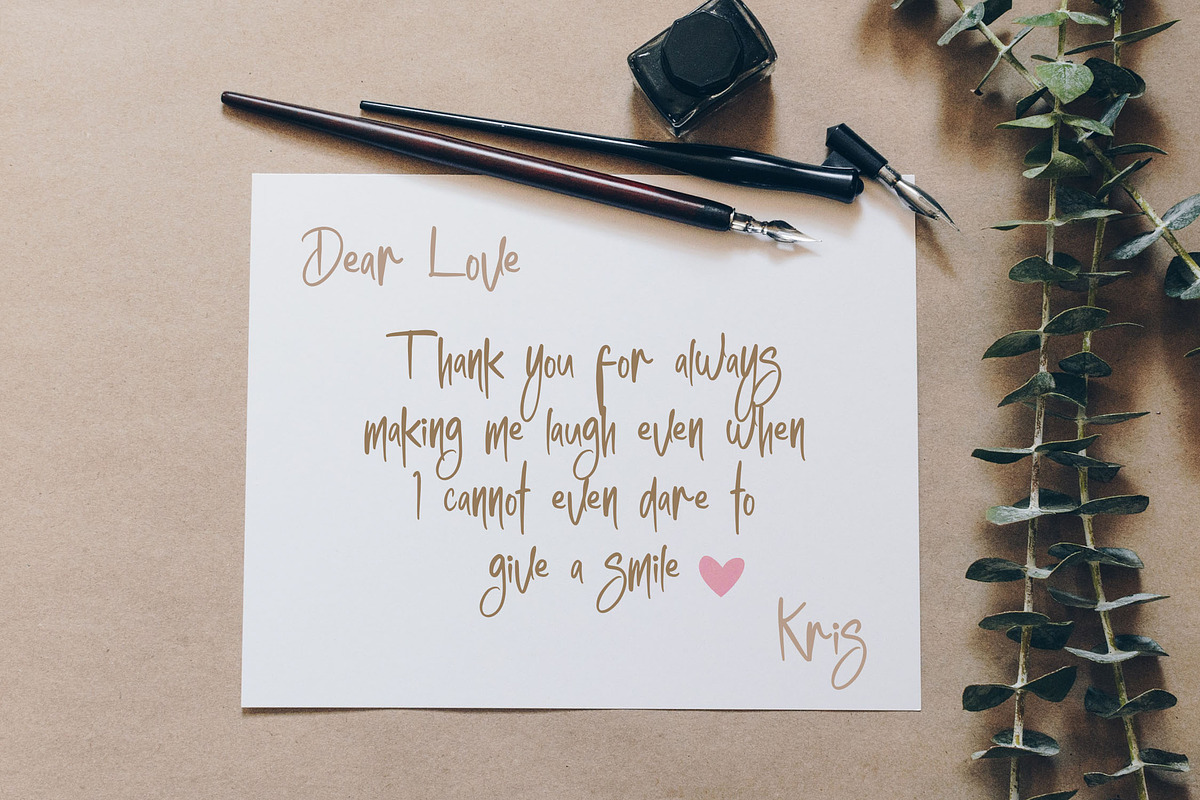 Dear Love
Thank you for always
making me laugh even when
I cannot even dare to
give a smile
Kris